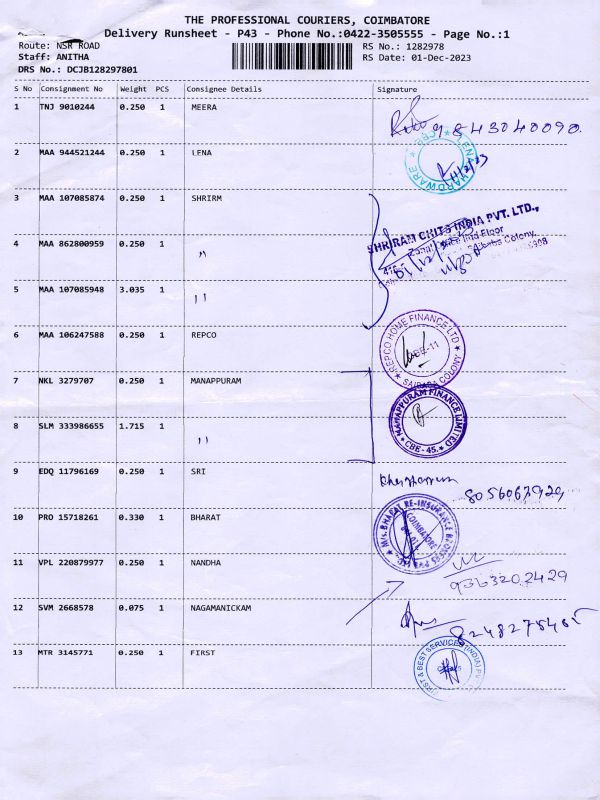 THE PROFESSIONAL COURIERS, COIMBATORE
Delivery Runsheet - P43 - Phone No.:0422-3505555 - Page No.:1
Route: NSR ROAD
RS No.: 1282978
Staff: ANITHA
RS Date: 01-Dec-2023
DRS No.: DCJB128297801
S No Consignment No Weight PCS Consignee Details Signature
1 TNJ 9010244 0.250 1 MEERA
9843040090.
2 MAA 944521244 0.250 1 LENA
LENA HARDWARE * CBE *
3 MAA 107085874 0.250 1 SHRIRM
SHRIRAM CHITS INDIA PVT. LTD.,
4 MAA 862800959 0.250 1 "
01/12/23
5 MAA 107085948 3.035 1 "
6 MAA 106247588 0.250 1 REPCO
REPCO HOME FINANCE LTD * SAIBABA COLONY *
CBE-11
7 NKL 3279707 0.250 1 MANAPPURAM
MANAPPURAM FINANCE LIMITED
* CBE - 45. *
8 SLM 333986655 1.715 1 "
9 EDQ 11796169 0.250 1 SRI
8056067929
10 PRO 15718261 0.330 1 BHARAT
M/s. BHARAT RE-INSURANCE BROKERS PVT. LTD.
COIMBATORE
11 VPL 220879977 0.250 1 NANDHA
9363202429
12 SVM 2668578 0.075 1 NAGAMANICKAM
8248275465
13 MTR 3145771 0.250 1 FIRST
FIRST & BEST SERVICES (INDIA)